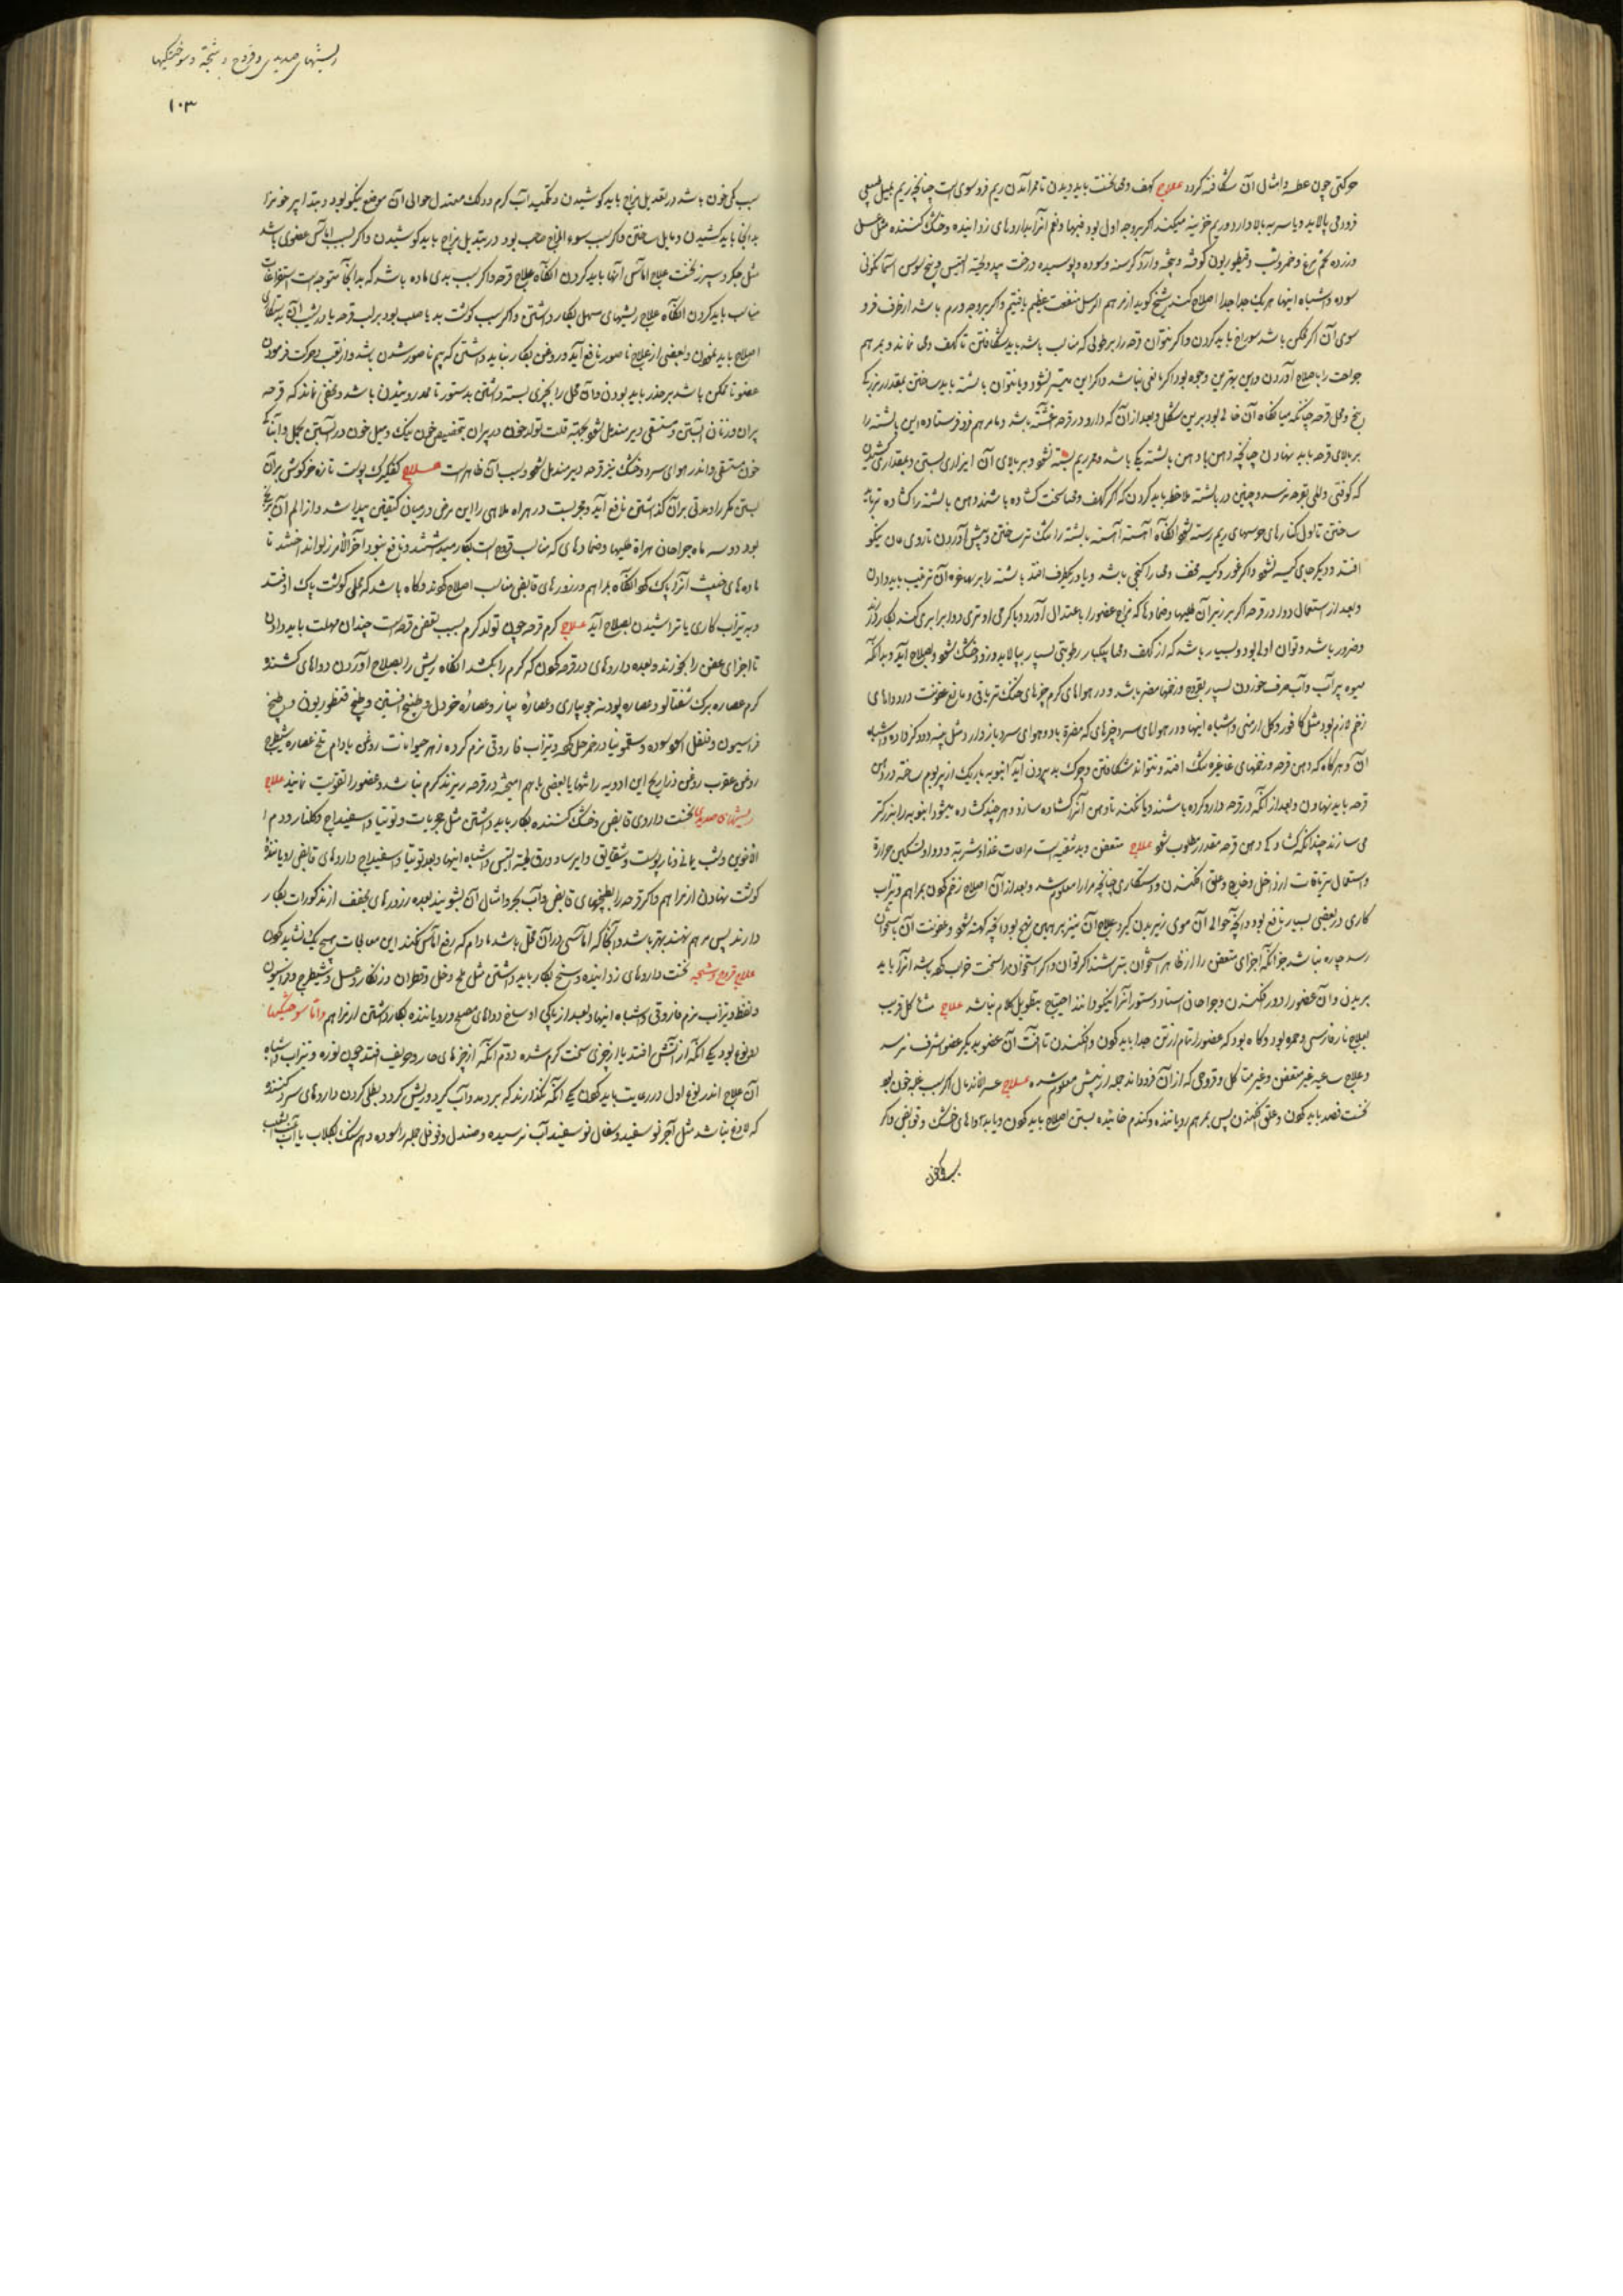 حرکتی چون عطسه و امثال آن شکافته کردد علاج کهف و مخبا نخست باید دیدن تا ممر آمدن ریم فروسوی است چنانچه ریم بمیل طبیعی
فرود می پالاید و یا سر به بالا دارد و ریم خزینه میکند اکر بر وجه اول بود فبها و نعم آنرا بداروهای زداینده و خشک کننده مثل عسل
و زرده تخم مرغ و خمر و شب و قنطوریون کوفته و پخته و آرد کرسنه و سوده و پوسیده درخت بید و لحیة التیس و بیخ سوسن آسمانکونی
سوده و اشباه اینها هر یک جدا جدا اصلاح کنند شیخ کوید از مرهم الرسل منفعت عظیم یافتیم و اکر بر وجه دوم باشد از طرف فرو
سوی آن اکر ممکن باشد سوراخ باید کردن و اکر نتوان قرحه را بر طولی که مناسب باشد باید شکافتن تا کهف و مخبا نماند و بمرهم
جراحت را باصلاح آوردن و این بهترین وجوه بود اکر مانعی نباشد و اکر این میسر نشود و یا نتوان بالشته باید ساختن بمقدار بزرکی
بیخ و محل قرحه چنانکه میانکاه آن خالی بود برین شکل و بعد از آن که دارو در قرحه باشد و یا مرهم فرو فرستاده این بالشته را
بر بالای قرحه باید نهادن چنانچه دهن با دهن بالشته یکی باشد و ممر ریم بسته نشود و بر بالای آن ابزاری بستن و بمقداری کشیدن
که کوفتی و المی بقرحه نرسد و چنین در بالشته ملاحظه باید کردن که اکر کهف و مخبا سخت کشاده باشند دهن بالشته را کشاده تر باید
ساختن تا اول کنارهای حوسهای ریم رسته شود آنکاه آهسته آهسته بالشته را تنک تر ساختن و پیش آوردن تا روی مان نیکو
افتد و دیکر جای کیسه نشود و اکر غور و کیسه مخفت و مخبا را کنجی باشد و یا در یکطرف افتد بالشته را بر بهاخره آن ترتیب باید دادن
و بعد از استعمال دوا در قرحه اکر بر زبر آن طلیها و ضمادها که مزاج عضو را باعتدال آورد و یا کرمی او تری دوا برابری کند بکار دارند
و ضرور باشد و توان اولی بود و بسیار باشد که از کهف و مخبا پیکبار رطوبتی بسیار بپالاید و زود خشک شود و بصلاح آید و بدانکه
میوه پر آب و آب صرف خوردن بسیار بقروح و زخمها مضر باشد و در هواهای کرم چیزهای خنک تریاقی و مانع عفونت در دواهای
زخم لازم بود مثل کافور و کل ارمنی و اشباه اینها و در هواهای سرد چیزهای که مضرة باد و هوای سرد باز دارد مثل پنبه دود کرده و اشباه
آن و هر کاه که دهن قرحه و زخمهای غایره تنک افتد و نتواند شکافتن و چرک بد بیرون آید انبوبه باریک از پر بوم ساخته در دهن
قرحه باید نهادن و بعد از آنکه در قرحه دارو کرده باشند و پاک کنند تا دهن آنرا کشاده سازد و هر چند کشاده میشود انبوبه را بزرکتر
می سازند چندانکه کشادکی دهن قرحه مقدار مطلوب شود علاج متعفن و بد تنقیه است مراعات غذا و شربة و دوا و تسکین حرارة
و استعمال تریاقات از داخل و خارج و علق افکندن و دستکاری چنانچه مرارا معلوم شد و بعد از آن اصلاح زخم کردن بمراهم و تیزاب
کاری در بعضی بسیار نافع بود و آنچه حوالی آن موی زیر بدن کیرد علاج آن نیز بر همین نهج بود و آنچه کهنه شود و عفونت آن باستخوان
رسد چاره نباشد جز آنکه اجزای متعفن را از ظاهر استخوان بتراشند اکر توان و اکر استخوان را سخت خراب کرده باشد آنرا باید
بریدن و آن عضو را دور فکندن و جراحان استاد دستور آنرا نیکو دانند احتیاج بتطویل کلام نباشد علاج متاکل قریب
بعلاج نار فارسی و جمره بود و کاه بود که عضو را تمام از تن جدا باید کردن و افکندن تا آفت آن عضو بدیکر عضو شریف نرسد
و علاج ساعیه غیر متعفن و غیر متاکل و قروحی که از آن فروداند جمله از پیش معلوم شده علاج عسر الاندمال اکر سبب غلبه خون بود
نخست فصد باید کردن و علق افکندن پس بمرهم رویاننده و کندم خائیده بستن اصلاح باید کردن و یا بدواهای خشک و قوابض و اکر
سبب کمی خون
ریشهای صدیدی و قروح و شجه و سوختکیها
۱۰۳
سبب کمی خون باشد در تعدیل مزاج باید کوشیدن و تکمید آب کرم و دلک معتدل حوالی آن موضع نیکو بود و بتدابیر خون را
بدانجا باید کشیدن و مایل ساختن و اکر سبب سوء المزاج صاحب بود در تبدیل مزاج باید کوشیدن و اکر سبب اماس عضوی باشد
مثل جکر و سپرز نخست علاج اماس آنها باید کردن آنکاه علاج قرحه و اکر سبب بدی ماده باشد که بدانجا متوجه است استفراغات
مناسب باید کردن آنکاه علاج ریشهای سهل بکار داشتن و اکر سبب کوشت بد یا صلب بود بر لب قرحه یا در شیب آن به دستکاری
اصلاح باید نمودن و بعضی از علاج ناصور نافع آید و روغن بکار نباید داشتن که بیم ناصور شدن باشد و از تعب و حرکت فرمودن
عضو تا ممکن باشد بر حذر باید بودن و آن محل را بچیزی بسته داشتن بدستور تا ممد روئیدن باشد و مخفی نماند که قرحه
پیران و زنان آبستن و مستسقی دیر مندمل شود بجهة قلت تولد خون در پیران بتخصیص خون نیک و میل خون در آبستن بحمل و آبناکی
خون مستسقی و اندر هوای سرد و خشک نیز قرحه دیر مندمل شود و سبب آن ظاهر است علاج کفکیرک پوست تازه خرکوش بر آن
بستن مکرر و مدتی بر آن کذاشتن نافع آید و مجربست در هراه ملاهی را این مرض در میان کتفین پیدا شد و از الم آن برنج
بود دو سه ماه جراحان هراة طلیها و ضمادهای که مناسب قروح است بکار میداشتند و نافع نبود آخر الامر زلو انداختند تا
مادهای خبیث آنرا پاک کرد آنکاه بمراهم و زرورهای قابض مناسب اصلاح کردند و کاه باشد که محلی کوشت پاک افتد
و به تیزاب کاری یا تراشیدن بصلاح آید علاج کرم قرحه چون تولد کرم بسبب تعفن قرحه است چندان مهلت باید دادن
تا اجزای عفن را بخورند و بعده داروهای در قرحه کردن که کرم را بکشد آنکاه ریش را بصلاح آوردن دواهای کشنده
کرم عصاره برک شفتالو و عصاره پودینه جویباری و عصارهٔ پیاز و عصارهٔ خردل و طبیخ افسنتین و طبیخ قنطوریون و طبیخ
فراسیون و فلفل سوده و سقمونیا در خمر حل کرده و تیزاب فاروقی نرم کرده زهر حیوانات روغن بادام تلخ عصاره شیطرج
روغن عقرب روغن ذراریح این ادویه را تنها یا بعضی با هم آمیخته در قرحه ریزند کرم نباشد و عضو را تقویت نمایند علاج
ریشهای صدیدی نخست داروی قابض و خشک کننده بکار باید داشتن مثل مجربات و توتیا و اسفیداج و کلنار و دم ا
لاخوین و شب یمانی و نار پوست و شقایق و ایرسا و ورق لحیة التیس و اشباه اینها و بعد توتیا و اسفیداج داروهای قابض رویانندهٔ
کوشت نهادن از مراهم و اکر قرحه را بطبخهای قابض و آب بحر و امثال آن بشویند بعده زرورهای مجفف از مذکورات بکار
دارند پس مرهم نهند بهتر باشد و آنجا که اماسی در آن محل باشد مادام که رفع اماس نکنند این معالجات هیچ یک نشاید کردن
علاج قروح و شجه نخست داروهای زداینده و سنخ بکار باید داشتن مثل ملح و خل و قطران و زنکار و عسل و شیطرج و فراسیون
و نفط و تیزاب نرم فاروقی و اشباه اینها و بعد از پاکی اوساخ دواهای مصلح و رویاننده بکار داشتن از مراهم و اما سوختکیها
دو نوع بود یکی آنکه از آتش افتد یا از چیزی سخت کرم شده دوم آنکه از چیزهای حار و حریف افتد چون نوره و تیزاب و اشباه
آن علاج اندر نوع اول دو رعایت باید کردن یکی آنکه نکذارند که بردمد و آب کیرد و ریش کردد بطلی کردن داروهای سرد کننده
که لاذع نباشد مثل آجر نو سفید و سفال نو سفید آب نرسیده و صندل و فوفل جمله را سوده و در سنک بکلاب یا آب